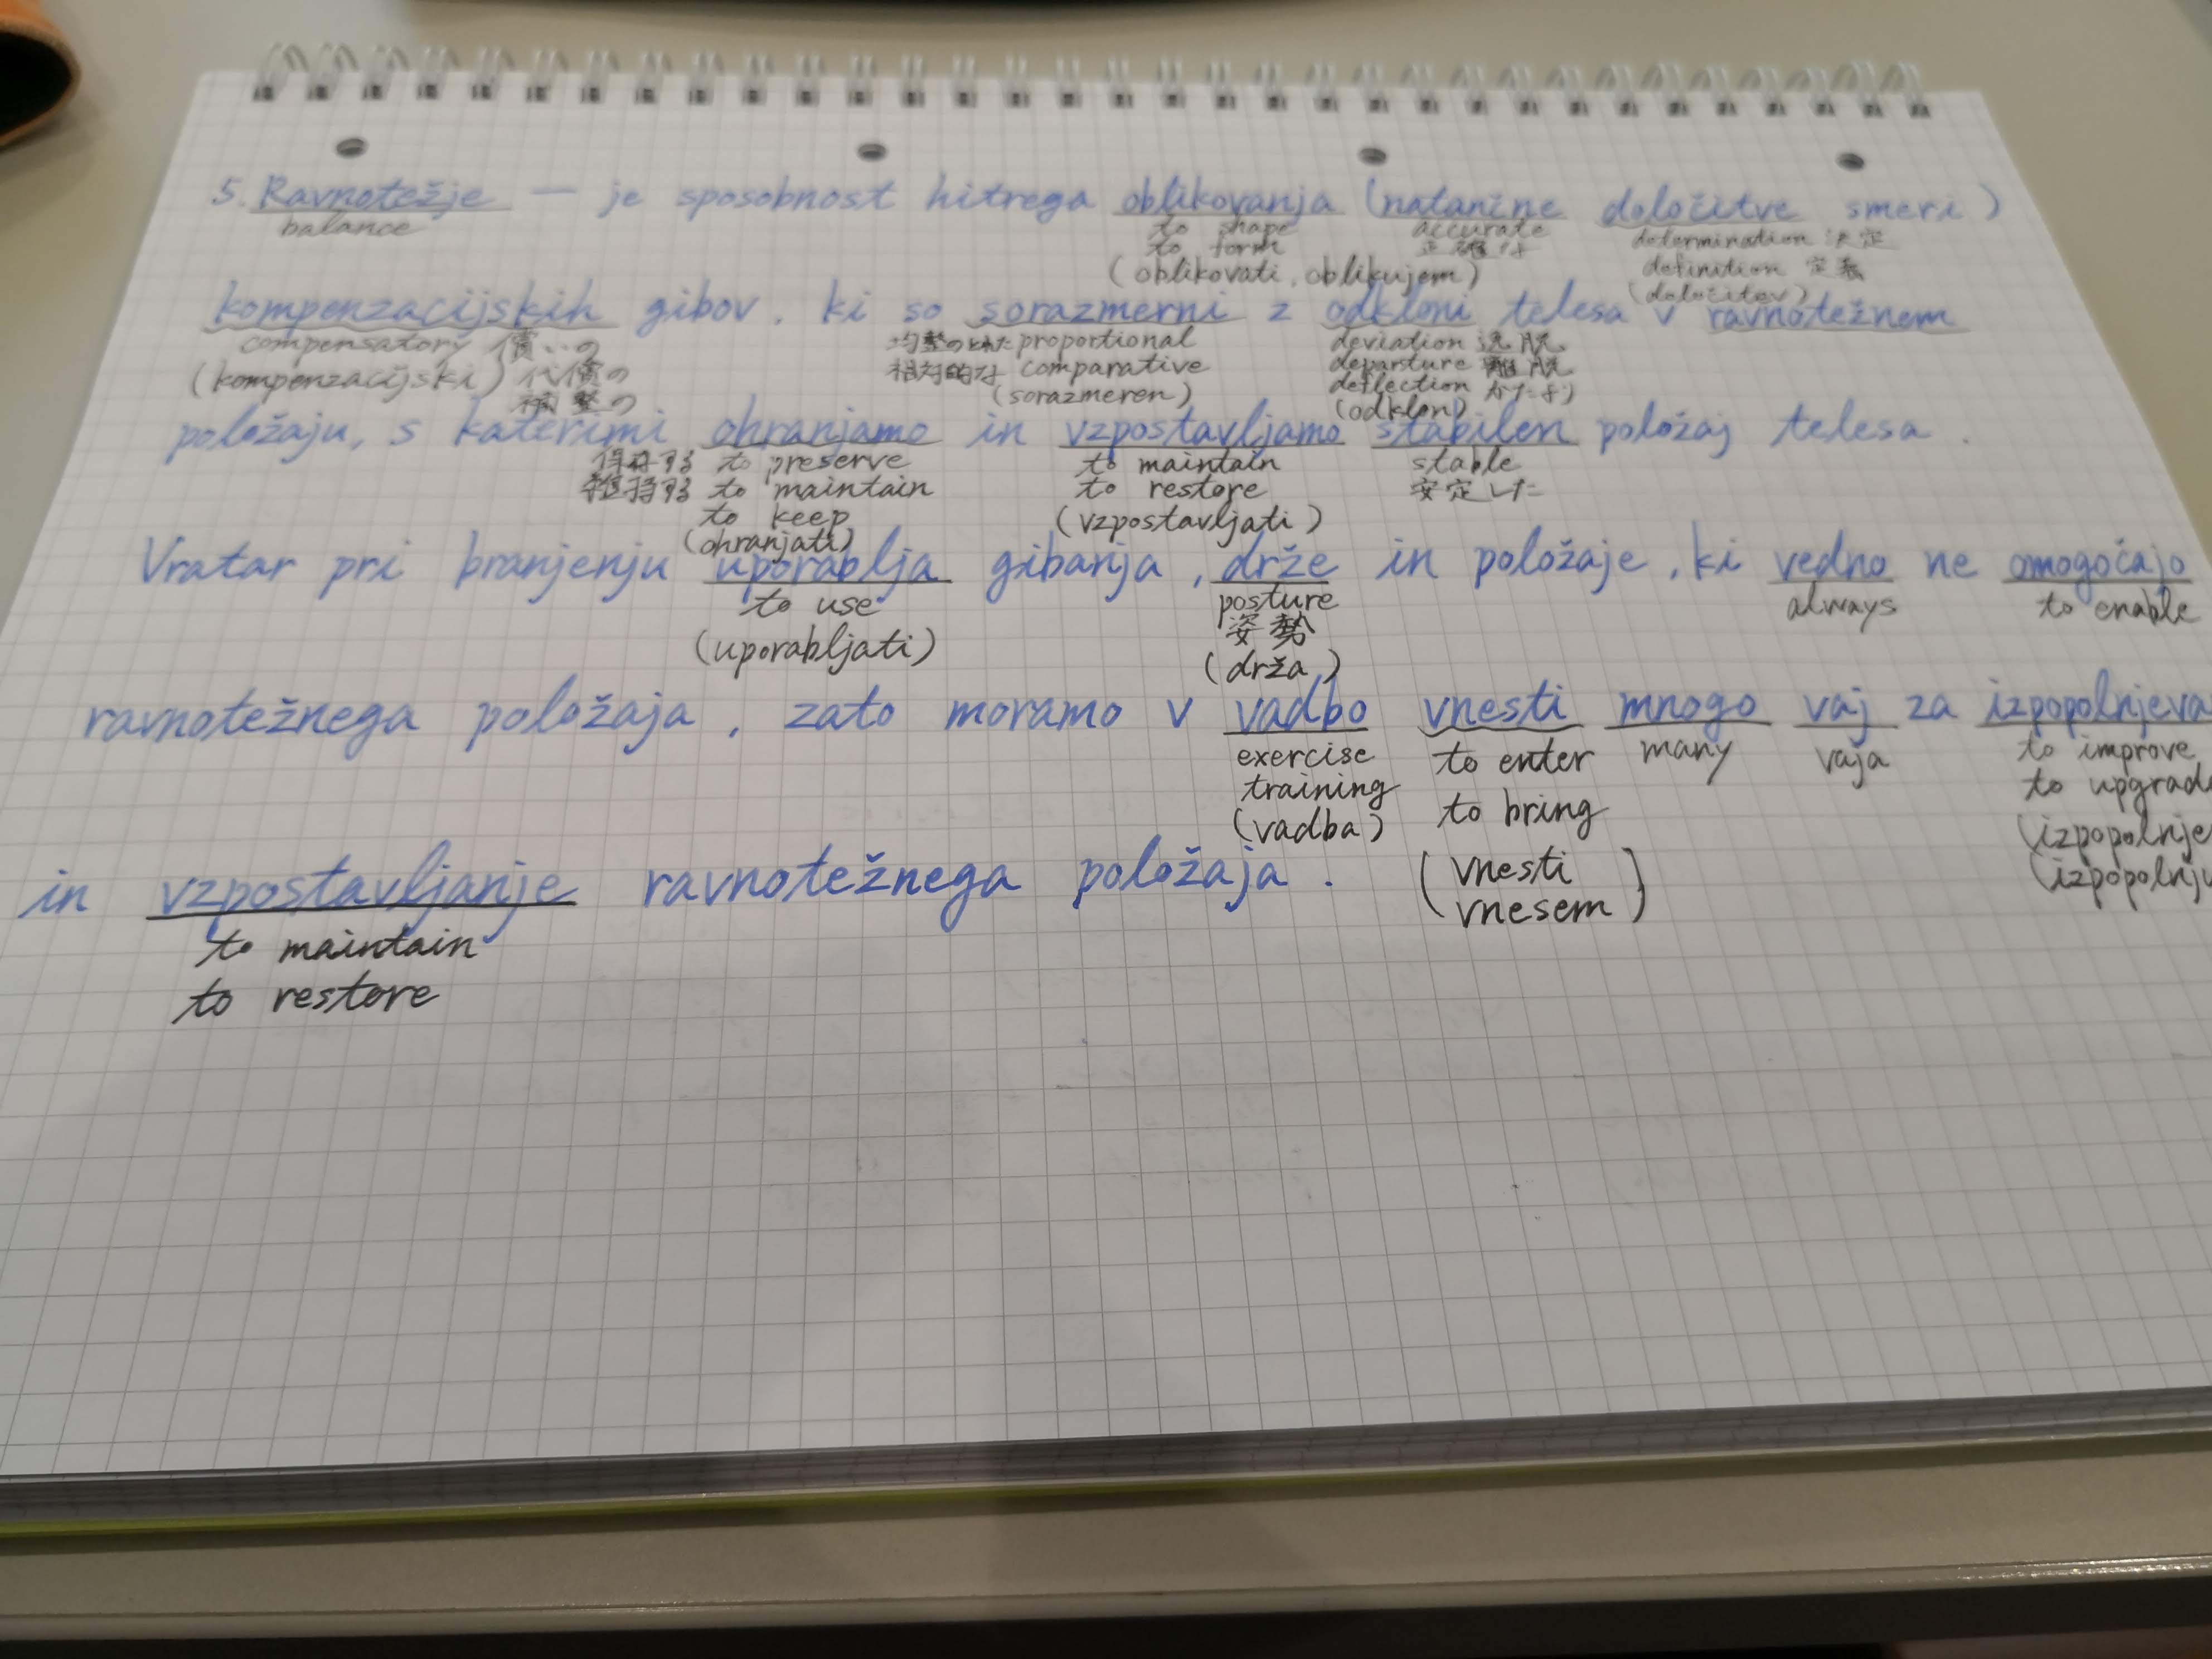 5. Ravnotežje — je sposobnost hitrega oblikovanja (natančne določitve smeri)
balance to shape accurate determination 決定
to form 正確な definition 定義
(oblikovati, oblikujem) (določitev)
kompenzacijskih gibov, ki so sorazmerni z odkloni telesa v ravnotežnem
compensatory 償いの 均整のとれた proportional deviation 逸脱
(kompenzacijski) 代償の 相対的な comparative departure 離脱
補整の (sorazmeren) deflection かたより
(odklon)
položaju, s katerimi ohranjamo in vzpostavljamo stabilen položaj telesa.
保存する to preserve to maintain stable
維持する to maintain to restore 安定した
to keep (vzpostavljati)
(ohranjati)
Vratar pri branjenju uporablja gibanja, drže in položaje, ki vedno ne omogočajo
to use posture always to enable
(uporabljati) 姿勢
(drža)
ravnotežnega položaja, zato moramo v vadbo vnesti mnogo vaj za izpopolnjeva
exercise to enter many vaja to improve
training to bring to upgrad
(vadba) (vnesti (izpopolnje
vnesem) (izpopolnju
in vzpostavljanje ravnotežnega položaja.
to maintain
to restore